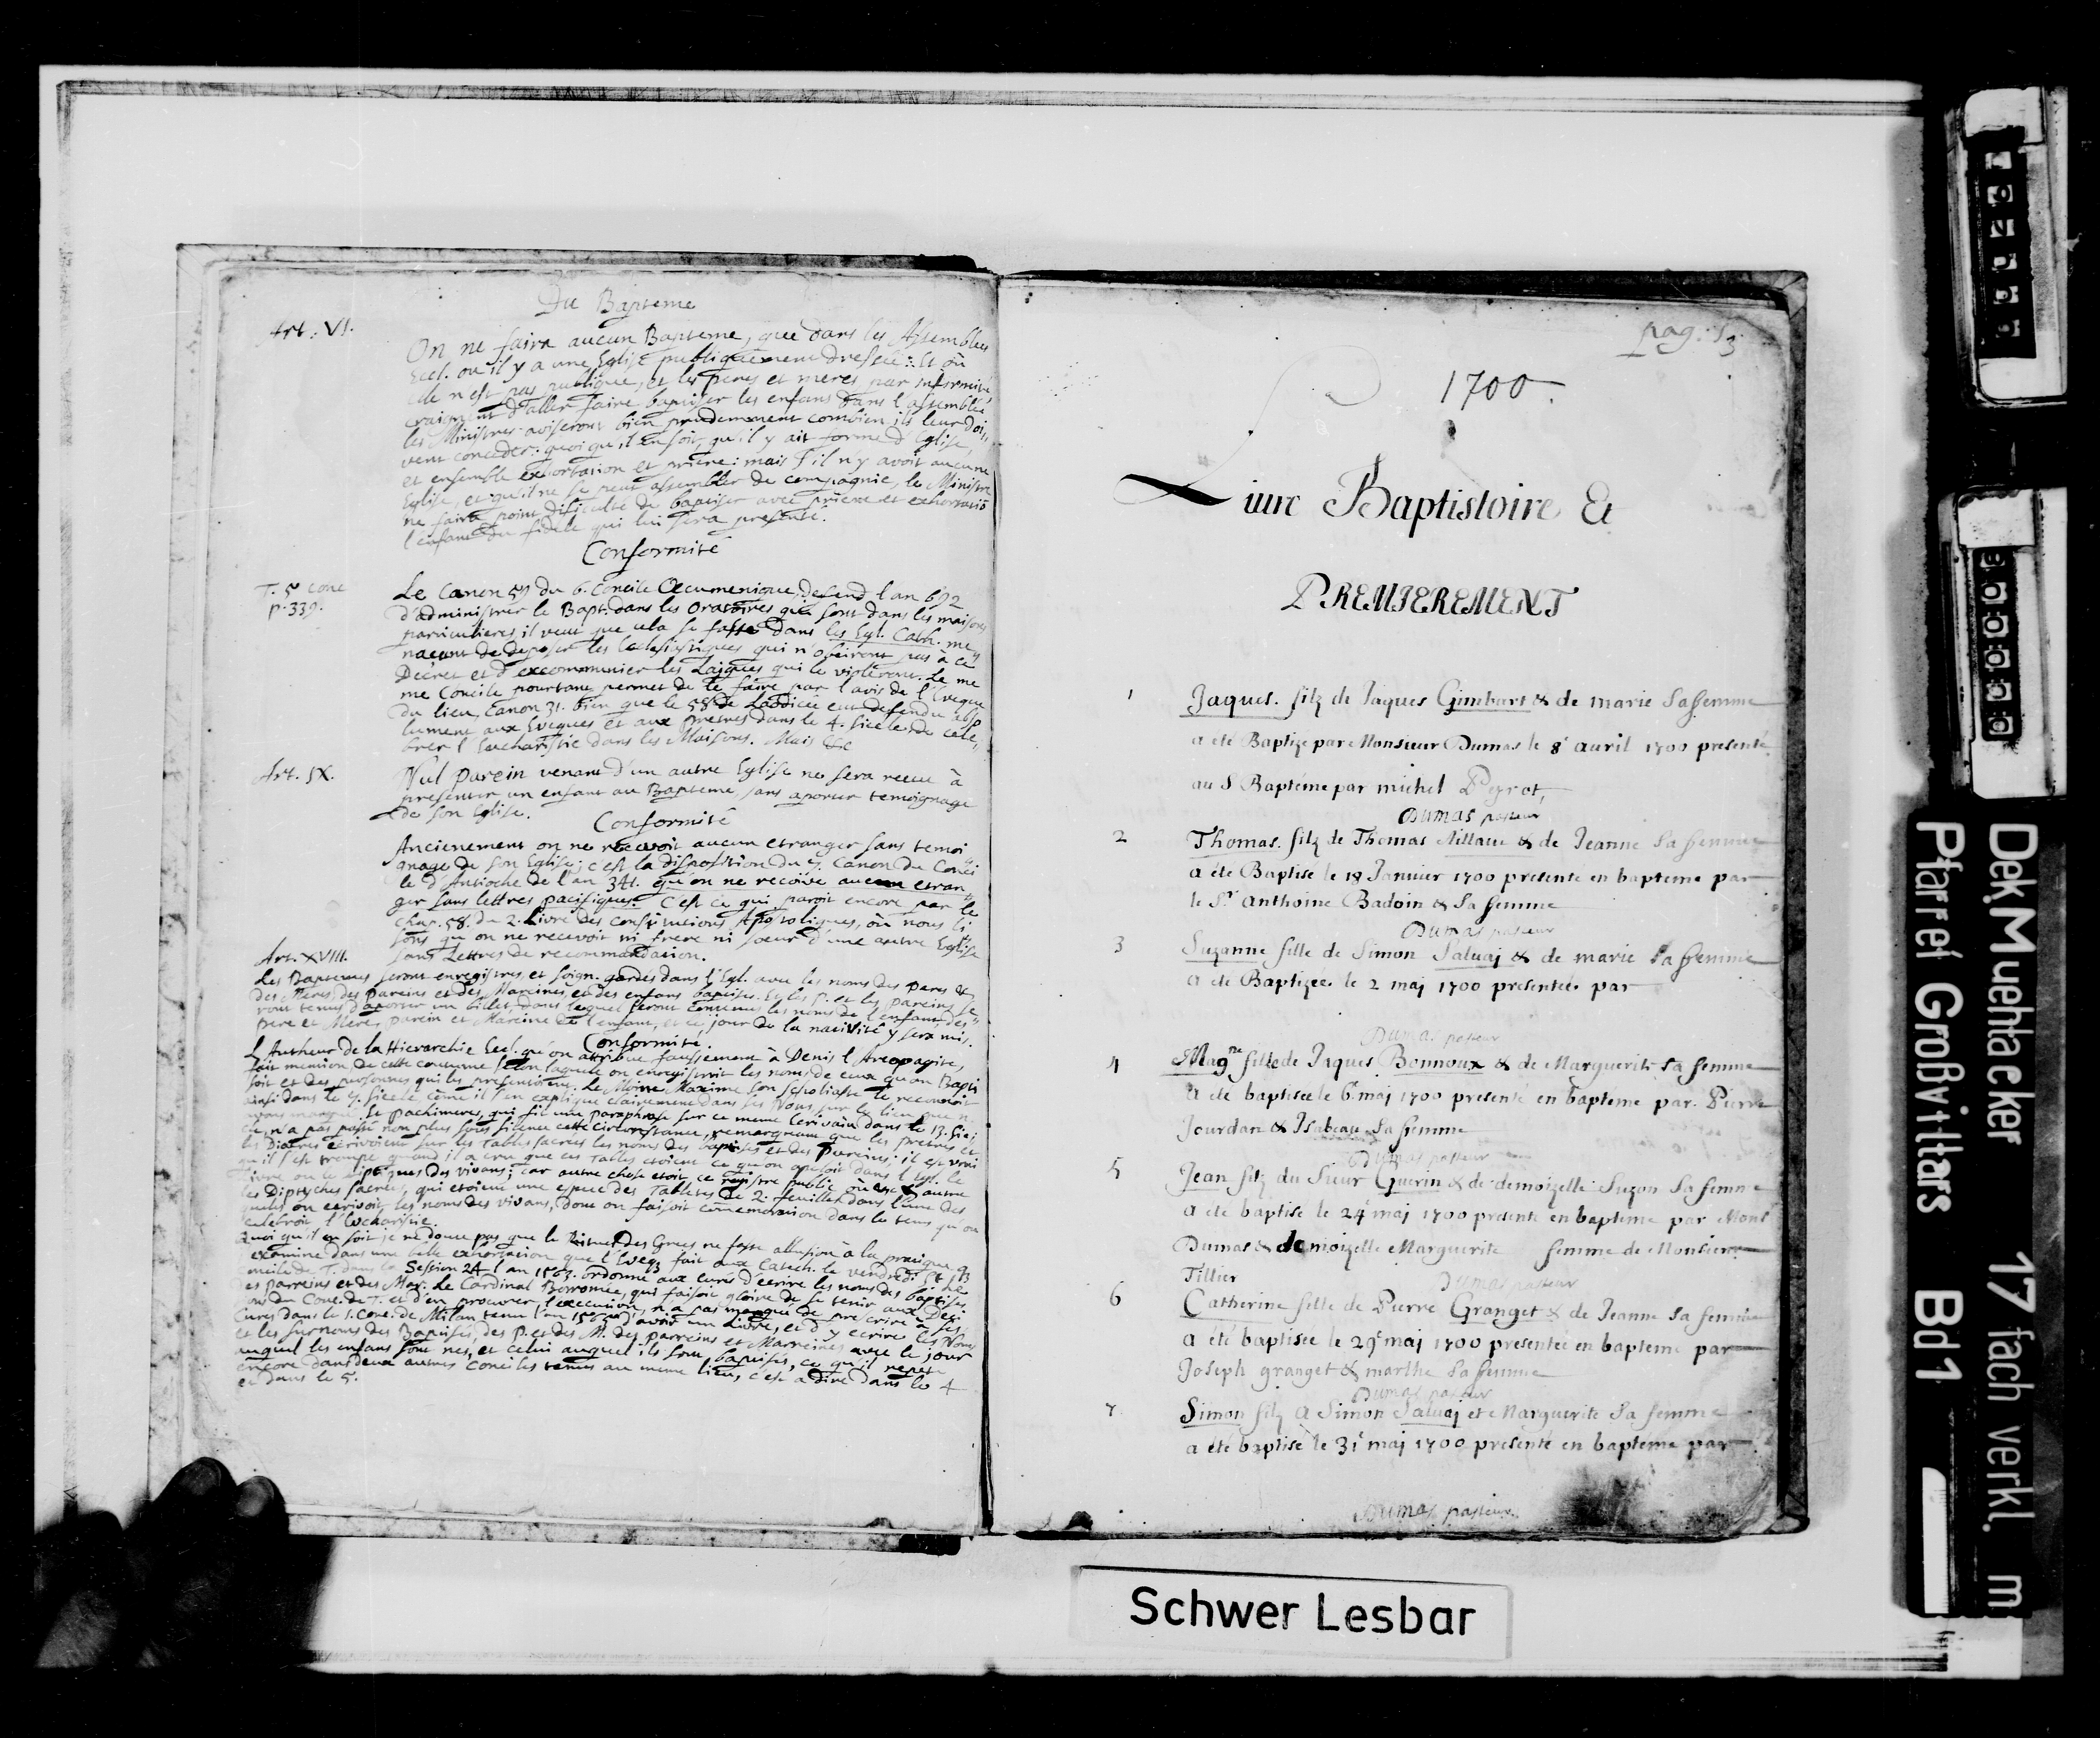 Du Bapteme
Art: VI.
On ne faira aucun Bapteme, que dans les Assemblees
Eccl. ou il y a une Eglise publiquement dressée: Et où
elle n'est pas publique, et les peres et meres par infirmité
craignent d'aller faire baptiser les enfans dans l'assemblée
les Ministres aviseront bien prudemment combien ils leur doi
vent conceder: quoi qu'il en soit, qu'il y ait forme d'Eglise,
et ensemble exhortation et priere: mais s'il n'y avoit aucune
Eglise, et qu'il ne se peut assembler de compagnie, le Ministre
ne faira point dificulté de baptiser avec priere et exhortatiō
l'enfant du fidele qui lui sera presenté.
Conformité
T. 5 conc
p. 339.
Le Canon 59 du 6. Concile Oecumenique, defend l'an 692
d'administrer le Bapt. dans les Oratoires qui sont dans les maisons
particulieres, il veut que cela se fasse dans les Egl. Cath. me
nacent de deposer les Ecclesiastiques qui n'obeiront pas à ce
Decret et d'excommunier les Laiques qui le violeront. Le me
me Concile pourtant permet de le faire par l'avis de l'Eveque
du lieu, Canon 31. bien que le 58 de Laodicée eut defendu abso
lument aux Eveques et aux Pretres dans le 4. siecle, de cele,
brer l'Eucharistie dans les Maisons. Mais &c
Art. IX.
Nul parein venant d'un autre Eglise ne sera receu à
presenter un enfant au Bapteme, sans aporter temoignage
de son Eglise.
Conformité
Ancienement on ne recevoit aucun etranger sans temoi
gnage de son Eglise; c'est la disposition du 7. Canon du Conci
le d'Antioche de l'an 341. qu'on ne recoive aucun etran
ger sans lettres pacifiques. C'est ce qui paroit encore par le
Chap. 58. du 2. Livre des constitutions Apostoliques, où nous li
sons qu'on ne recevoit ni frere ni soeur d'une autre Eglise
sans Lettres de recommandation.
Art. XVIII.
Les Baptemes seront enregistres et soign. gardes dans l'Egl. avec les noms des peres &
des Meres, des pareins et des Mareines, et des enfans baptises. Et les P. et les pareins se
ront tenus d'aporter un billet, dans lequel seront contenus les noms de l'enfant, des
pere et Mere, parein et Mareine de l'enfant, et ce jour de la nativité y sera mis.
Conformité.
L'Autheur de la Hierarchie Eccl. qu'on attribue faussement à Denis l'Areopagite,
fait mention de cette coutume selon laquelle on enregistroit les noms de ceux qu'on Bapti
soit et des personnes qui les presentoient. Le Moine Maxime son scholiaste le reconnoit
ainsi dans le 7. siecle come il s'en explique clairement dans ses Nous sur le lieu que n
avons marqué. Et pachimeres, qui fit une paraphrase sur ce meme Ecrivain dans le 13. Sie
cle, n'a pas passé non plus sous silence cette circonstance, remarquant que les pretres et
les Diacres ecrivoient sur les Tables sacrées les noms des baptisés et des Pareins; il est vrai
qu'il s'est trompé quand il a cru que ces Tables etoient ce qu'on apeloit dans l'Egl. le
livre ou le diptiques des vivans; car autre chose etoit ce registre public où etc & autre
les Diptyches sacrées, qui etoient une espece des Tabletes de 2. feuilles, dans l'une des
queles on ecrivoit les noms des vivans, dont on faisoit comemoraison dans le tems qu'on
celebroit l'Eucharistie.
Quoi qu'il en soit je ne doute pas que le Rituel des Grecs ne fasse allusion à la pratique q
examine dans une belle exhortation que l'Eveq. fait aux Catech. le vendredi St
cile de T. dans la Session 24 l'an 1563. ordonne aux curés d'ecrire les noms des baptises
des parreins et des Mar. Le Cardinal Borromée, qui faisoit gloire de se tenir aux Deci
sions du Conc. de T. et d'en procurer l'execution, n'a pas manqué de prescrire à ses
Cures dans le 1. Conc. de Milan tenu l'an 1565 d'avoir un Livre, et d'y ecrire les Noms
et les surnoms des Baptisés, des P. et des M. des parreins et Marreines avec le jour
auquel les enfans sont nes, et celui auquel ils sont baptises, ce qu'il repete
encore dans deux autres conciles tenus au meme lieu, c'est a dire dans le 4
et dans le 5.
pag: 13
1700.
Liure Baptistoire Et
PREMIEREMENT
1 Jaques. filz de Jaques Gimbart & de marie sa femme
a été Baptize par Monsieur Dumas le 8e auril 1700 presenté
au S Baptéme par michel Peyrot,
Dumas pasteur
2 Thomas. filz de Thomas Aillaue & de Jeanne sa femme
a été Baptise le 18 Januier 1700 presenté en bapteme par
le Sr Anthoine Badoin & sa femme
Dumas pasteur
3 Suzanne fille de Simon Saluaj & de marie sa femme
a été Baptizée le 2 maj 1700 presentée par
Dumas pasteur
4 Magne fille de Jaques Bonnoux & de Marguerite sa femme
a été baptisée le 6e maj 1700 presenté en bapteme par Pierre
Jourdan & Isabeau sa femme
Dumas pasteur
5 Jean filz du Sieur Guerin & de demoizelle Suzon sa femme
a été baptisé le 24e maj 1700 presenté en bapteme par Mons
Dumas & demoizelle Marguerite femme de Monsieur
Tillier
Dumas pasteur
6 Catherine fille de Pierre Granget & de Jeanne sa femme
a été baptisée le 29e maj 1700 presentée en bapteme par
Joseph granget & marthe sa femme
Dumas pasteur
7 Simon filz a Simon Saluaj et Marguerite sa femme
a été baptisé le 31e maj 1700 presenté en bapteme par
Dumas pasteur
Schwer Lesbar
Dek. Muehlacker 17 fach verkl. m
Pfarrei Großvillars Bd 1